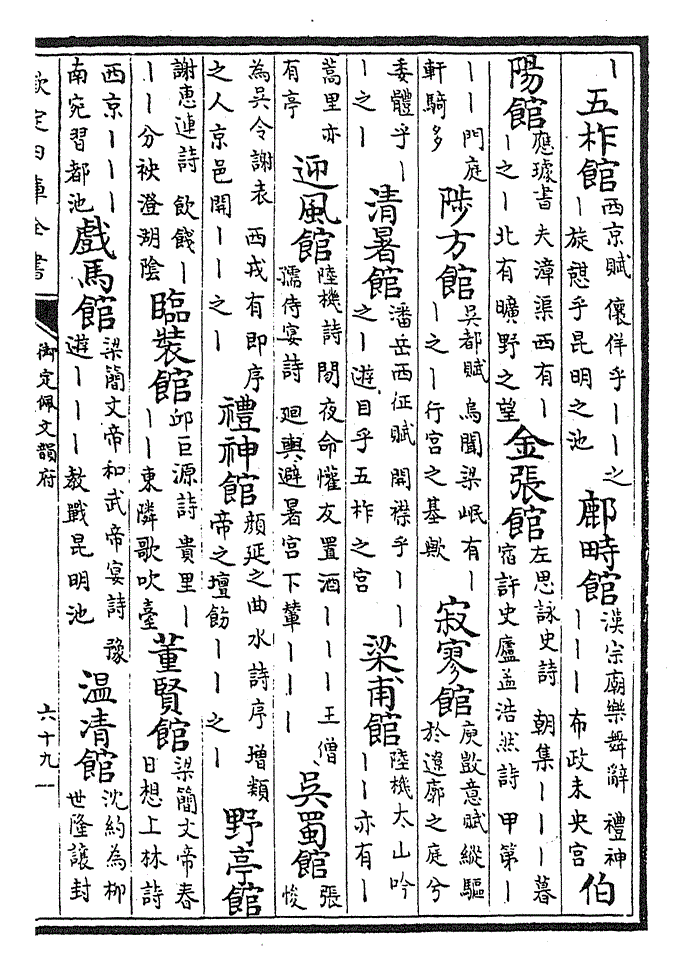 丨五柞館西京賦儴佯乎丨丨之丨旋憇乎昆明之池鄜畤館漢宗廟樂舞辭禮神丨丨丨布政未央宮伯
陽館應璩書夫漳渠西有丨丨之丨北有曠野之望金張館左思詠史詩朝集丨丨丨暮宿許史廬孟浩然詩甲第丨
丨丨門庭軒騎多陟方館吳都賦烏聞梁岷有丨丨之丨行宮之基歟寂寥館庾敳意賦縱驅於遼廓之庭兮
委體乎丨丨之丨清暑館潘岳西征賦開襟乎丨丨之丨遊目乎五柞之宮梁甫館陸機太山吟丨丨亦有丨
蒿里亦有亭迎風館陸機詩閒夜命懽友置酒丨丨丨王僧孺侍宴詩廻輿避暑宮下輦丨丨丨吳蜀館張悛
為吳令謝表西戎有即序之人京邑開丨丨之丨禮神館顔延之曲水詩序增類帝之壇飭丨丨之丨野亭館
謝惠連詩飲餞丨丨丨分袂澄湖陰臨裝館邱巨源詩貴里丨丨丨東隣歌吹臺董賢館梁簡文帝春日想上林詩
西京丨丨丨南宛習都池戲馬館梁簡文帝和武帝宴詩豫遊丨丨丨教戰昆明池温清館沈約為柳世隆讓封
欽定四庫全書
御定佩文韻府
六十九